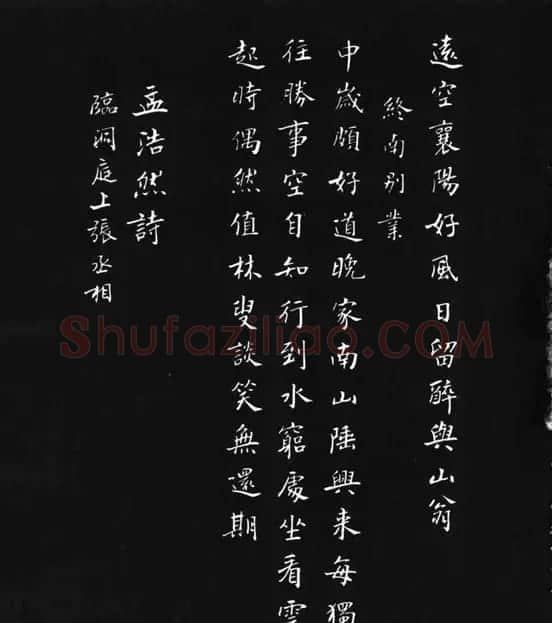 遠空襄陽好風日留醉與山翁
終南別業
中歲頗好道晚家南山陲興来每獨
往勝事空自知行到水窮處坐看雲
起時偶然值林叟談笑無還期
孟浩然詩
臨洞庭上張丞相
Shufaziliao.com